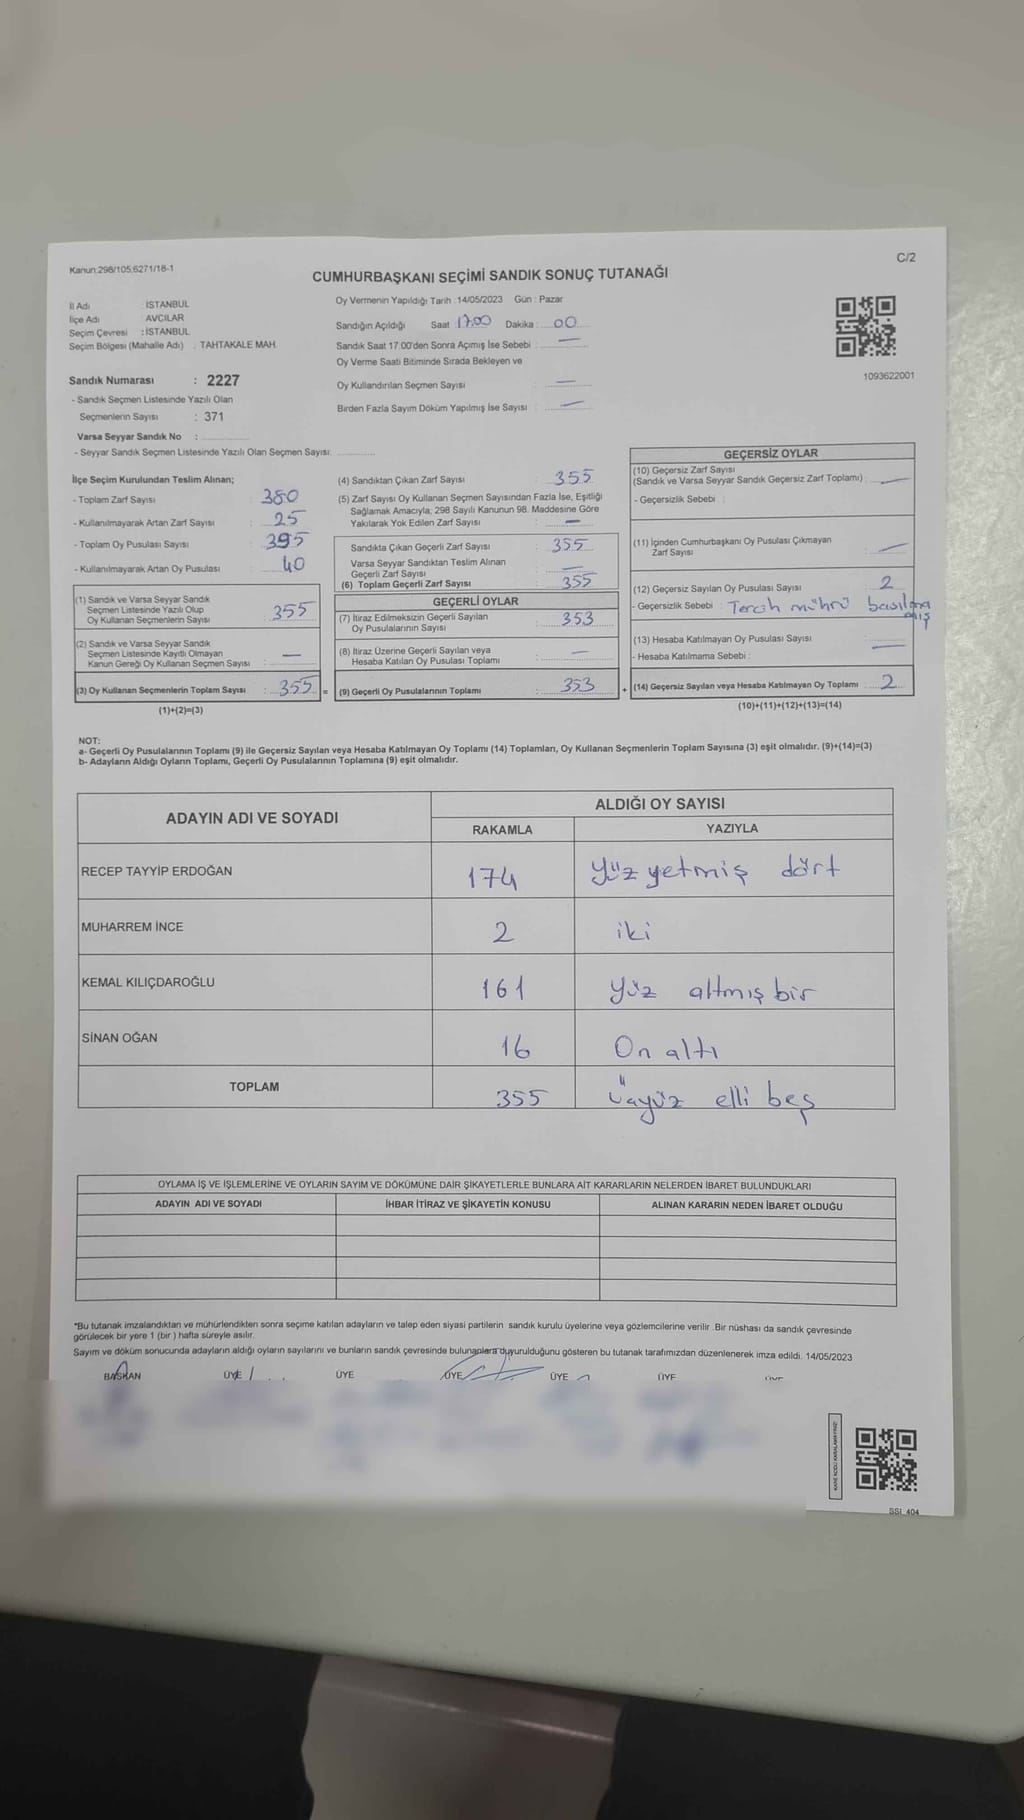 Kanun:298/105;6271/18-1
C/2
CUMHURBAŞKANI SEÇİMİ SANDIK SONUÇ TUTANAĞI
İl Adı : İSTANBUL
İlçe Adı : AVCILAR
Seçim Çevresi : İSTANBUL
Seçim Bölgesi (Mahalle Adı) : TAHTAKALE MAH.
Oy Vermenin Yapıldığı Tarih :14/05/2023 Gün : Pazar
Sandığın Açıldığı Saat 17:00 Dakika : 00
Sandık Saat 17:00'den Sonra Açımış İse Sebebi : —
Oy Verme Saati Bitiminde Sırada Bekleyen ve
Oy Kullandırılan Seçmen Sayısı : —
Birden Fazla Sayım Döküm Yapılmış İse Sayısı : —
1093622001
Sandık Numarası : 2227
- Sandık Seçmen Listesinde Yazılı Olan
Seçmenlerin Sayısı : 371
Varsa Seyyar Sandık No :
- Seyyar Sandık Seçmen Listesinde Yazılı Olan Seçmen Sayısı:
İlçe Seçim Kurulundan Teslim Alınan;
- Toplam Zarf Sayısı : 380
- Kullanılmayarak Artan Zarf Sayısı : 25
- Toplam Oy Pusulası Sayısı : 395
- Kullanılmayarak Artan Oy Pusulası : 40
(1) Sandık ve Varsa Seyyar Sandık
Seçmen Listesinde Yazılı Olup
Oy Kullanan Seçmenlerin Sayısı : 355
(2) Sandık ve Varsa Seyyar Sandık
Seçmen Listesinde Kayıtlı Olmayan
Kanun Gereği Oy Kullanan Seçmen Sayısı : —
(3) Oy Kullanan Seçmenlerin Toplam Sayısı : 355 =
(1)+(2)=(3)
(4) Sandıktan Çıkan Zarf Sayısı : 355
(5) Zarf Sayısı Oy Kullanan Seçmen Sayısından Fazla İse, Eşitliği
Sağlamak Amacıyla; 298 Sayılı Kanunun 98. Maddesine Göre
Yakılarak Yok Edilen Zarf Sayısı : —
Sandıkta Çıkan Geçerli Zarf Sayısı : 355
Varsa Seyyar Sandıktan Teslim Alınan
Geçerli Zarf Sayısı : —
(6) Toplam Geçerli Zarf Sayısı : 355
GEÇERLİ OYLAR
(7) İtiraz Edilmeksizin Geçerli Sayılan
Oy Pusulalarının Sayısı : 353
(8) İtiraz Üzerine Geçerli Sayılan veya
Hesaba Katılan Oy Pusulası Toplamı : —
(9) Geçerli Oy Pusulalarının Toplamı : 353 +
GEÇERSİZ OYLAR
(10) Geçersiz Zarf Sayısı
(Sandık ve Varsa Seyyar Sandık Geçersiz Zarf Toplamı) : —
- Geçersizlik Sebebi :
(11) İçinden Cumhurbaşkanı Oy Pusulası Çıkmayan
Zarf Sayısı —
(12) Geçersiz Sayılan Oy Pusulası Sayısı 2
- Geçersizlik Sebebi : Tercih mührü basılma
mış
(13) Hesaba Katılmayan Oy Pusulası Sayısı
- Hesaba Katılmama Sebebi : —
(14) Geçersiz Sayılan veya Hesaba Katılmayan Oy Toplamı 2
(10)+(11)+(12)+(13)=(14)
NOT:
a- Geçerli Oy Pusulalarının Toplamı (9) ile Geçersiz Sayılan veya Hesaba Katılmayan Oy Toplamı (14) Toplamları, Oy Kullanan Seçmenlerin Toplam Sayısına (3) eşit olmalıdır. (9)+(14)=(3)
b- Adayların Aldığı Oyların Toplamı, Geçerli Oy Pusulalarının Toplamına (9) eşit olmalıdır.
ADAYIN ADI VE SOYADI ALDIĞI OY SAYISI
RAKAMLA YAZIYLA
RECEP TAYYİP ERDOĞAN 174 Yüz yetmiş dört
MUHARREM İNCE 2 iki
KEMAL KILIÇDAROĞLU 161 Yüz altmış bir
SİNAN OĞAN 16 On altı
TOPLAM 355 Üçyüz elli beş
OYLAMA İŞ VE İŞLEMLERİNE VE OYLARIN SAYIM VE DÖKÜMÜNE DAİR ŞİKAYETLERLE BUNLARA AİT KARARLARIN NELERDEN İBARET BULUNDUKLARI
ADAYIN ADI VE SOYADI İHBAR İTİRAZ VE ŞİKAYETİN KONUSU ALINAN KARARIN NEDEN İBARET OLDUĞU
*Bu tutanak imzalandıktan ve mühürlendikten sonra seçime katılan adayların ve talep eden siyasi partilerin sandık kurulu üyelerine veya gözlemcilerine verilir .Bir nüshası da sandık çevresinde
görülecek bir yere 1 (bir ) hafta süreyle asılır.
Sayım ve döküm sonucunda adayların aldığı oyların sayılarını ve bunların sandık çevresinde bulunanlara duyurulduğunu gösteren bu tutanak tarafımızdan düzenlenerek imza edildi. 14/05/2023
BAŞKAN ÜYE ÜYE ÜYE ÜYE ÜYE ÜYE
SSI_404